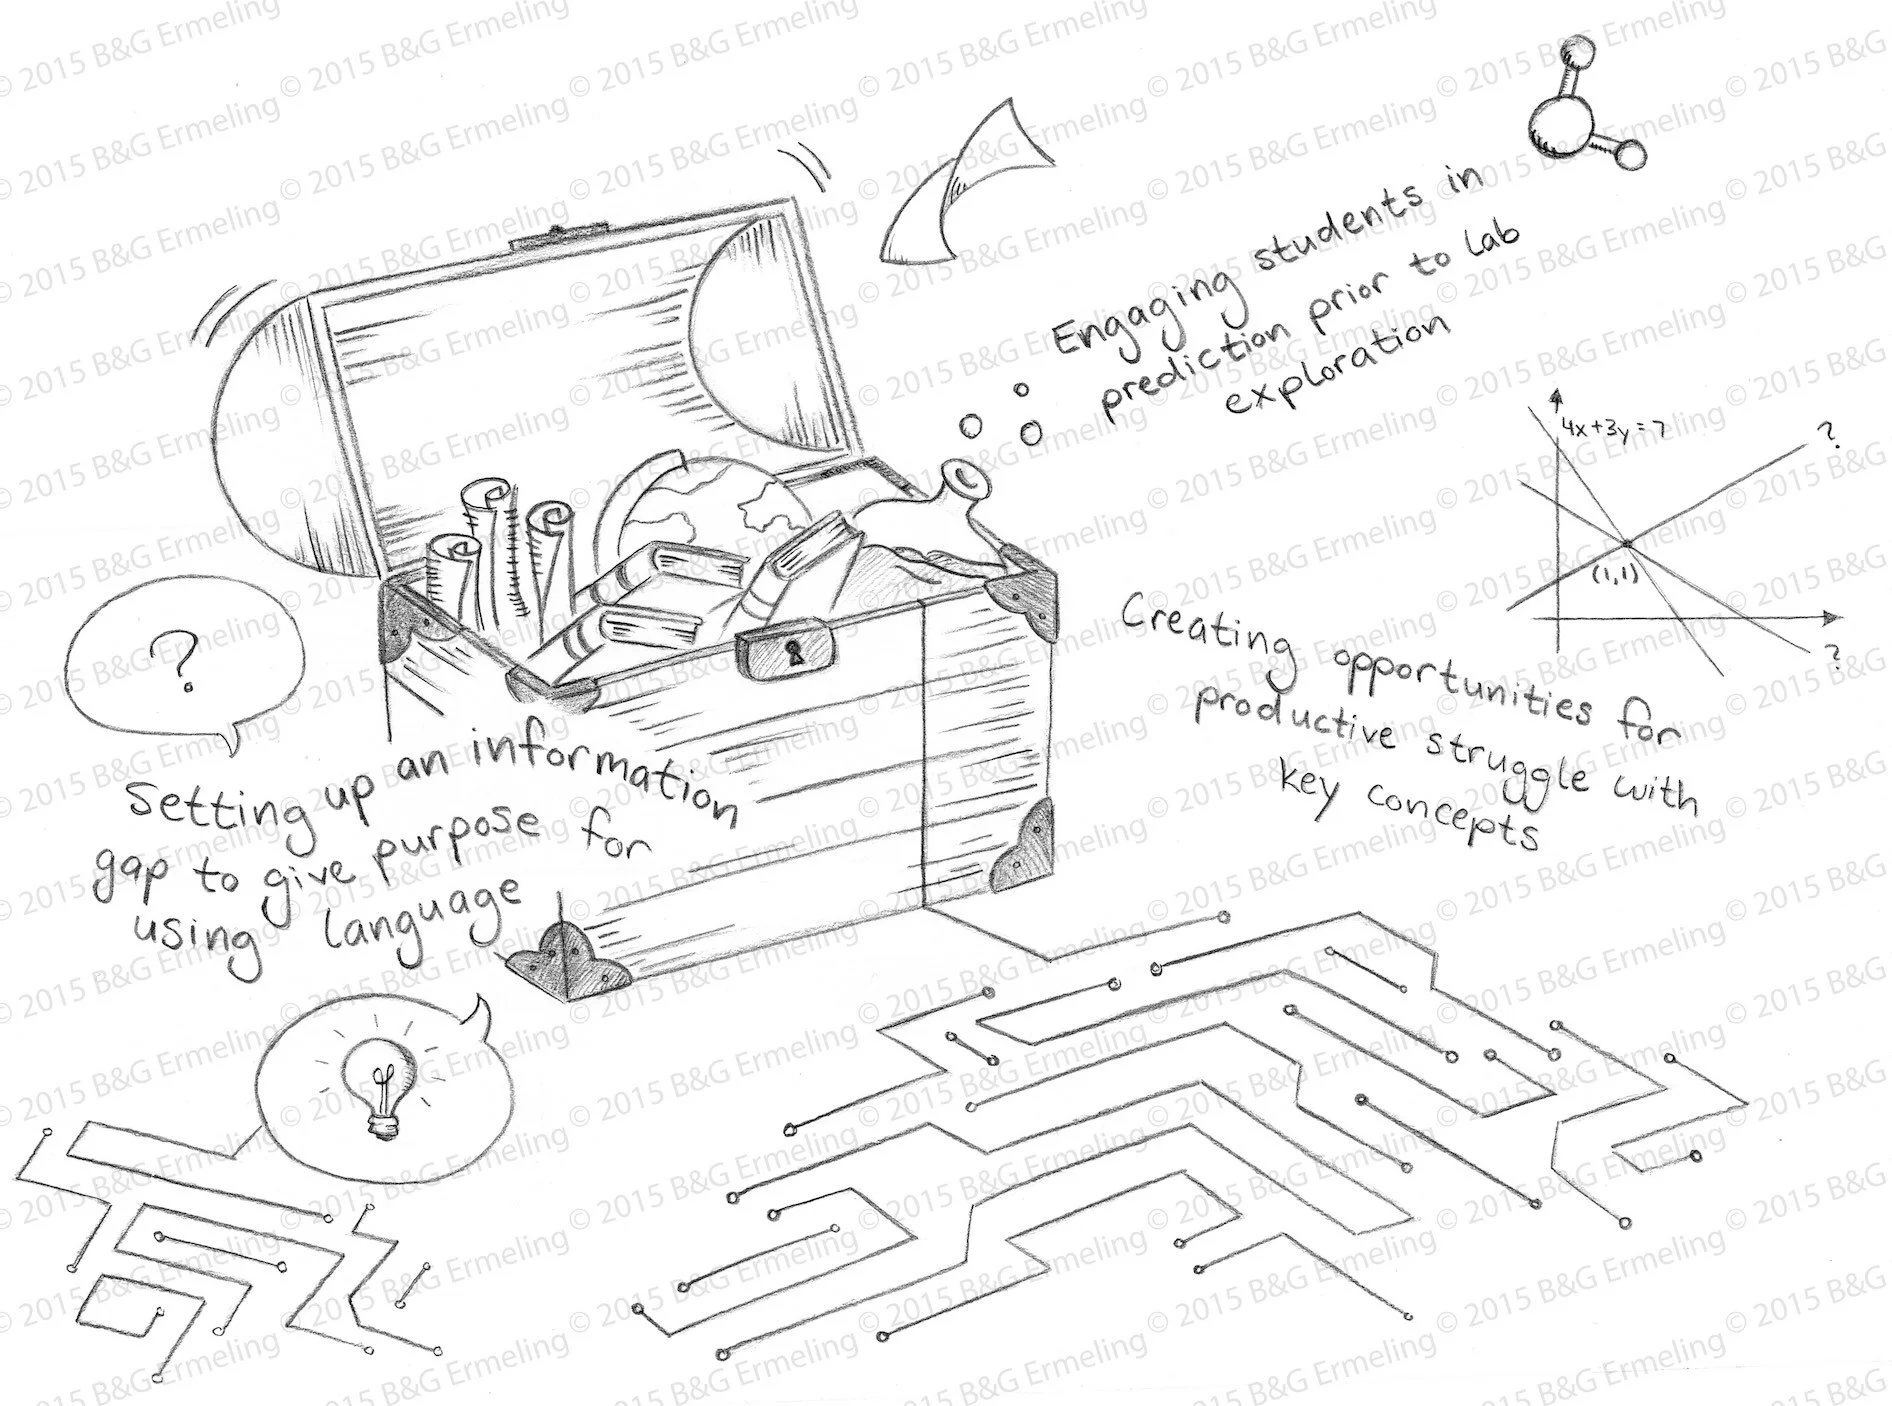 Engaging students in
prediction prior to lab
exploration
4x+3y=7
?
(1,1)
?
Creating opportunities for
productive struggle with
key concepts
?
Setting up an information
gap to give purpose for
using language
© 2015 B&G Ermeling